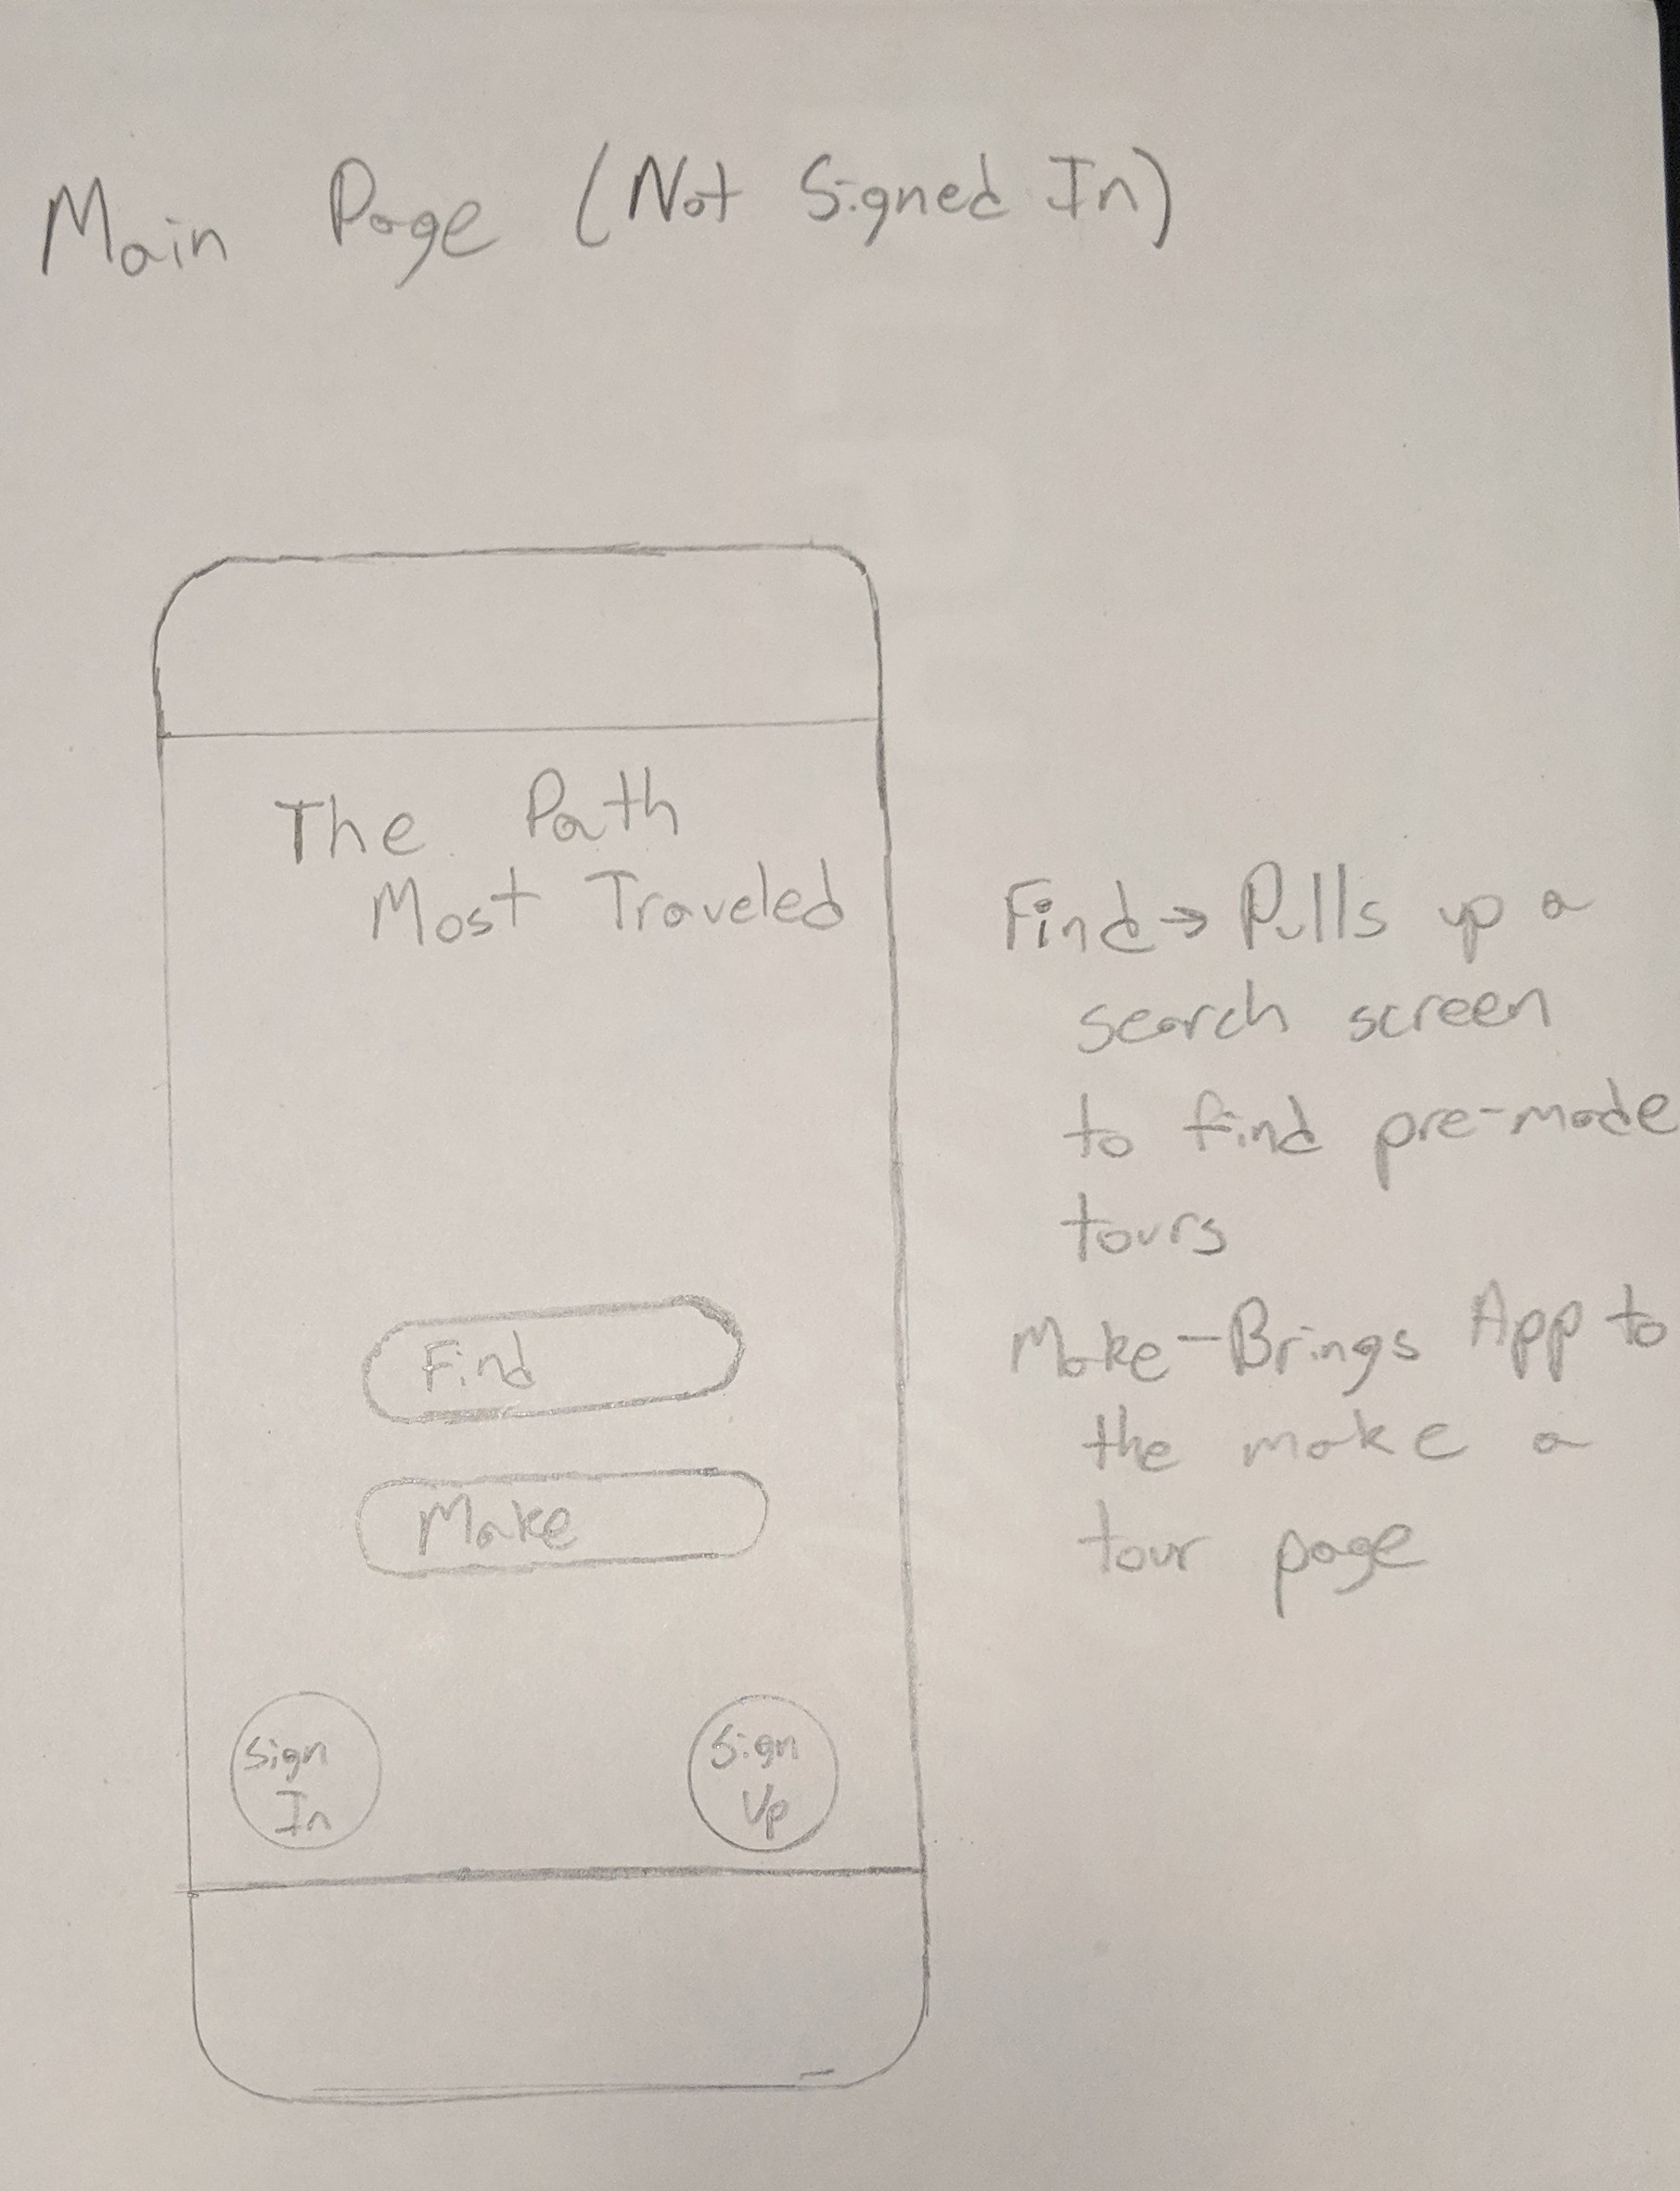 Main Page (Not Signed In)
The Path
Most Traveled
Find
Make
Sign
In
Sign
Up
Find → Pulls up a
search screen
to find pre-made
tours
Make - Brings App to
the make a
tour page